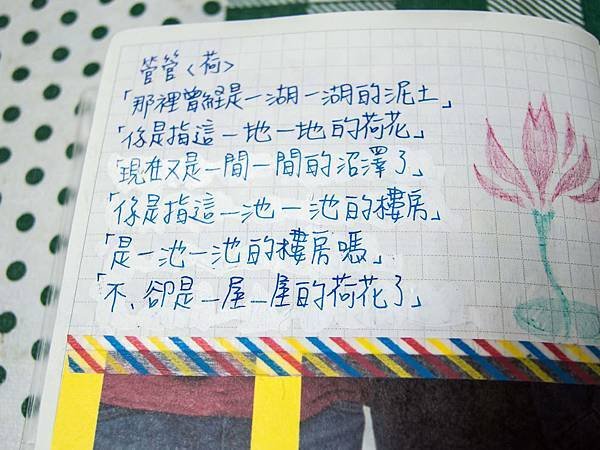 管管〈荷〉
「那裡曾經是一湖一湖的泥土」
「你是指這一地一地的荷花」
「現在又是一間一間的沼澤了」
「你是指這一池一池的樓房」
「是一池一池的樓房嗎」
「不、卻是一屋一屋的荷花了」